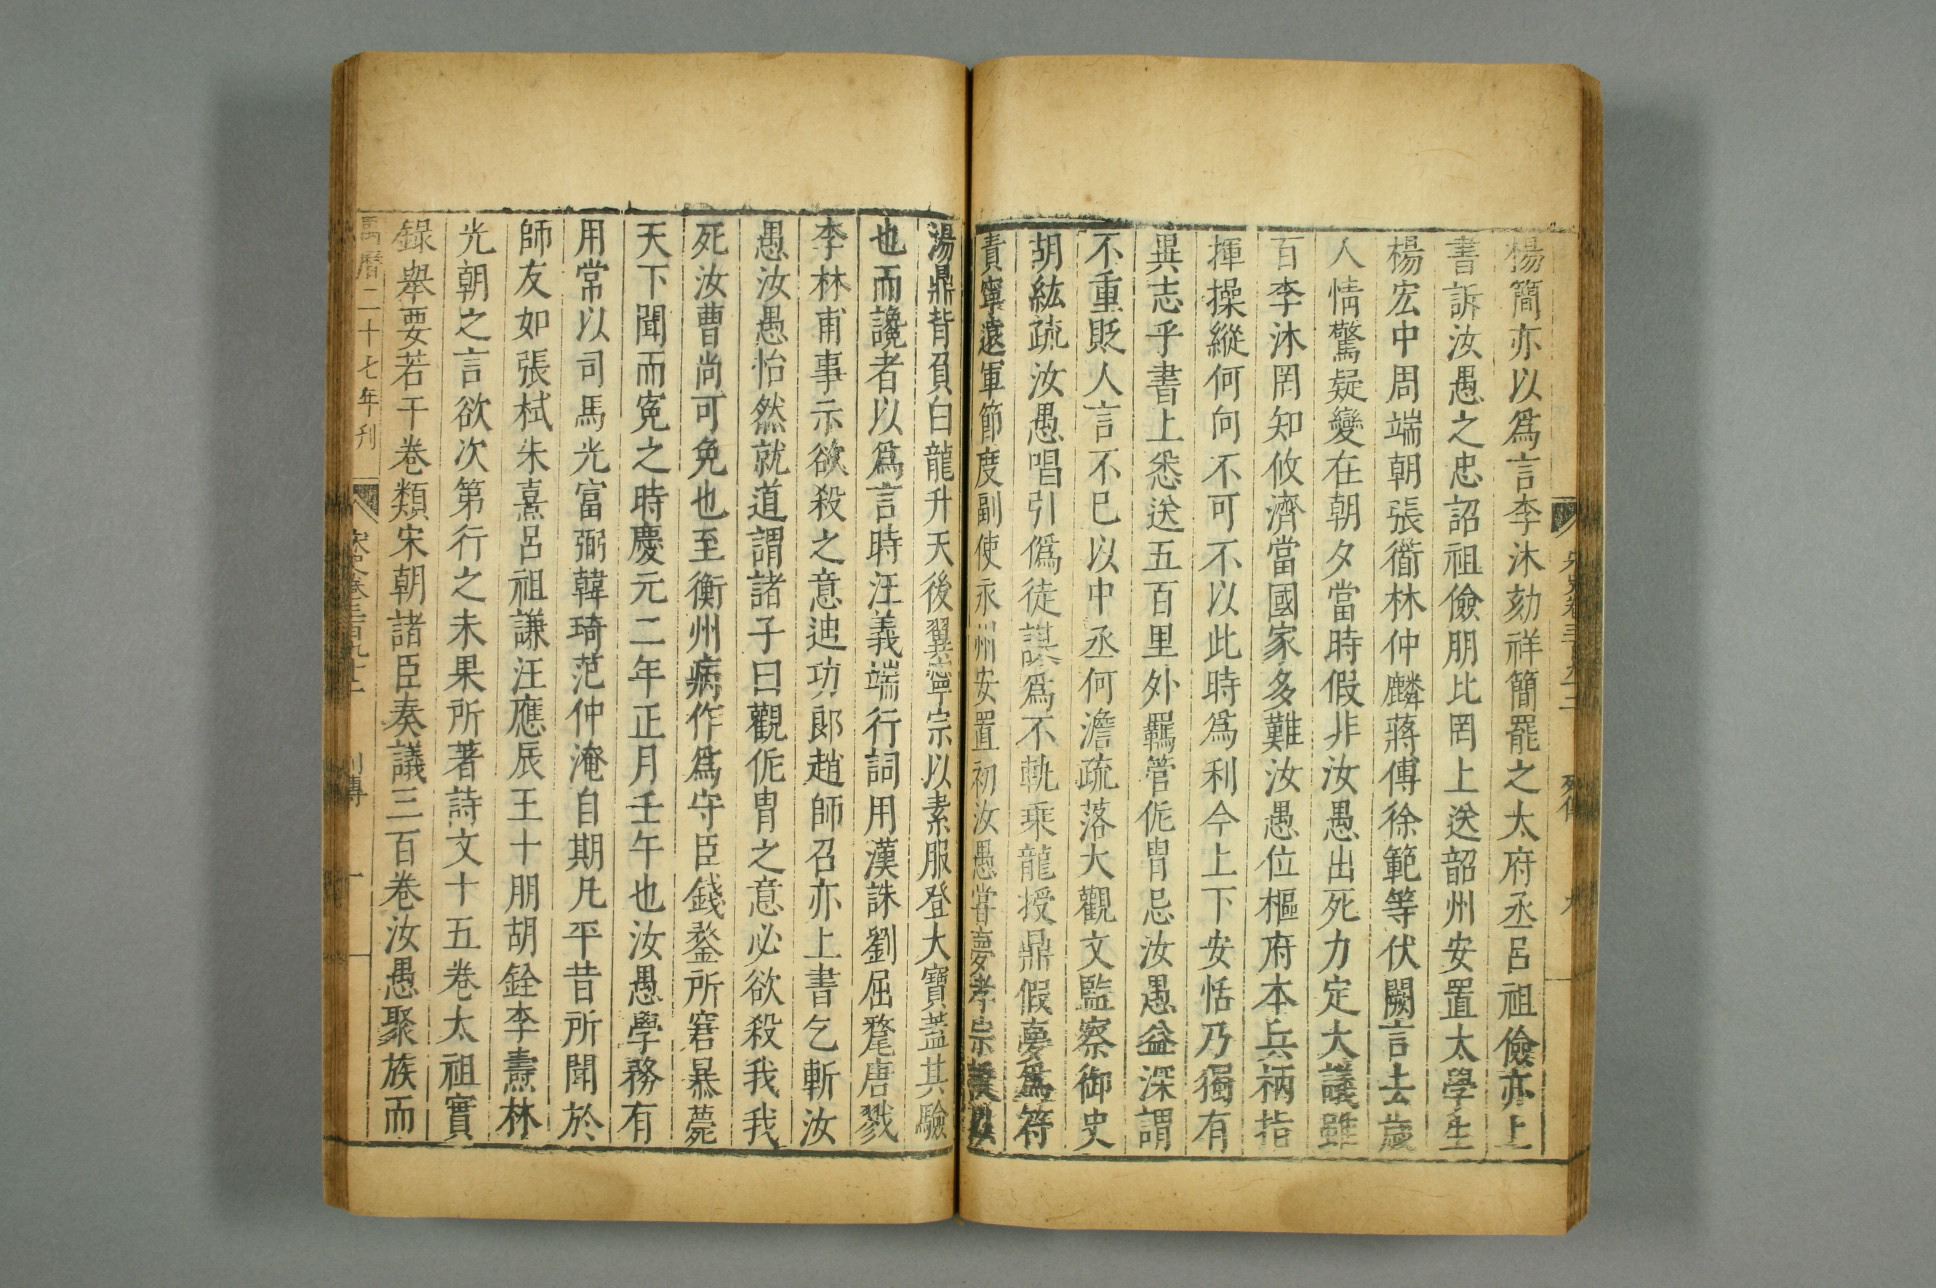 楊簡亦以爲言李沐劾祥簡罷之太府丞呂祖儉亦上
書訴汝愚之忠詔祖儉朋比罔上送韶州安置太學生
楊宏中周端朝張衜林仲麟蔣傅徐範等伏闕言去歲
人情驚疑變在朝夕當時假非汝愚出死力定大議雖
百李沐罔知攸濟當國家多難汝愚位樞府本兵柄指
揮操縱何向不可不以此時爲利今上下安恬乃獨有
異志乎書上悉送五百里外羈管侂冑忌汝愚益深謂
不重貶人言不已以中丞何澹疏落大觀文監察御史
胡紘疏汝愚唱引僞徒謀爲不軌乘龍授鼎假夢爲符
責寧遠軍節度副使永州安置初汝愚嘗夢孝宗授以
湯鼎背負白龍升天後翼寧宗以素服登大寶蓋其驗
也而讒者以爲言時汪義端行詞用漢誅劉屈氂唐戮
李林甫事示欲殺之意迪功郞趙師召亦上書乞斬汝
愚汝愚怡然就道謂諸子曰觀侂冑之意必欲殺我我
死汝曹尚可免也至衡州病作爲守臣錢鍪所窘暴薨
天下聞而寃之時慶元二年正月壬午也汝愚學務有
用常以司馬光富弼韓琦范仲淹自期凡平昔所聞於
師友如張栻朱熹呂祖謙汪應辰王十朋胡銓李燾林
光朝之言欲次第行之未果所著詩文十五卷太祖實
錄舉要若干卷類宋朝諸臣奏議三百卷汝愚聚族而
萬曆二十七年刊
宋史卷三百九十二
列傳